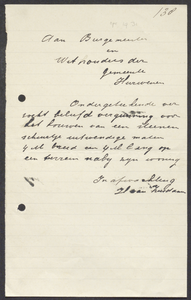 138
Aan Burgemeester
en
Wethouders der
gemeente
Herwenen
Ondergeteekende ver
zoekt beleefd vergunning voor
het bouwen van een steenen
schuurtje uitwendige maten
4 M breed en 4 M lang op
een terrein nabij zijn woning
In afwachting